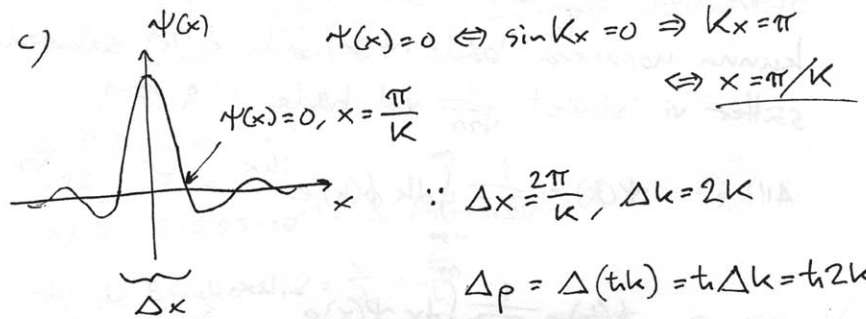 c) ψ(x) ψ(x)=0 ⇔ sin Kx =0 ⇒ Kx=π
⇔ x=π/K
ψ(x)=0, x=π/K
x ∵ Δx = 2π/K, Δk=2K
Δx Δp = Δ(ħk) = ħΔk = ħ2K